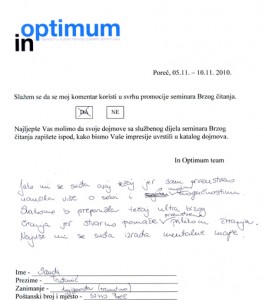 optimum
in
Poreč, 05.11. – 10.11. 2010.
Slažem se da se moj komentar koristi u svrhu promocije seminara Brzog čitanja.
DA
NE
Najljepše Vas molimo da svoje dojmove sa službenog dijela seminara Brzog
čitanja zapišete ispod, kako bismo Vaše impresije uvrstili u katalog dojmova.
In Optimum team
Jako mi se sviđa ovaj tečaj jer sam prvenstveno
naučila više o sebi i mogućnostima
tečaj ultra brzog
čitanja jer stvarno pomaže prilikom čitanja.
Najviše mi se sviđa izrada mentalne mape.
Ime -
Prezime -
Zanimanje -
Poštanski broj i mjesto -